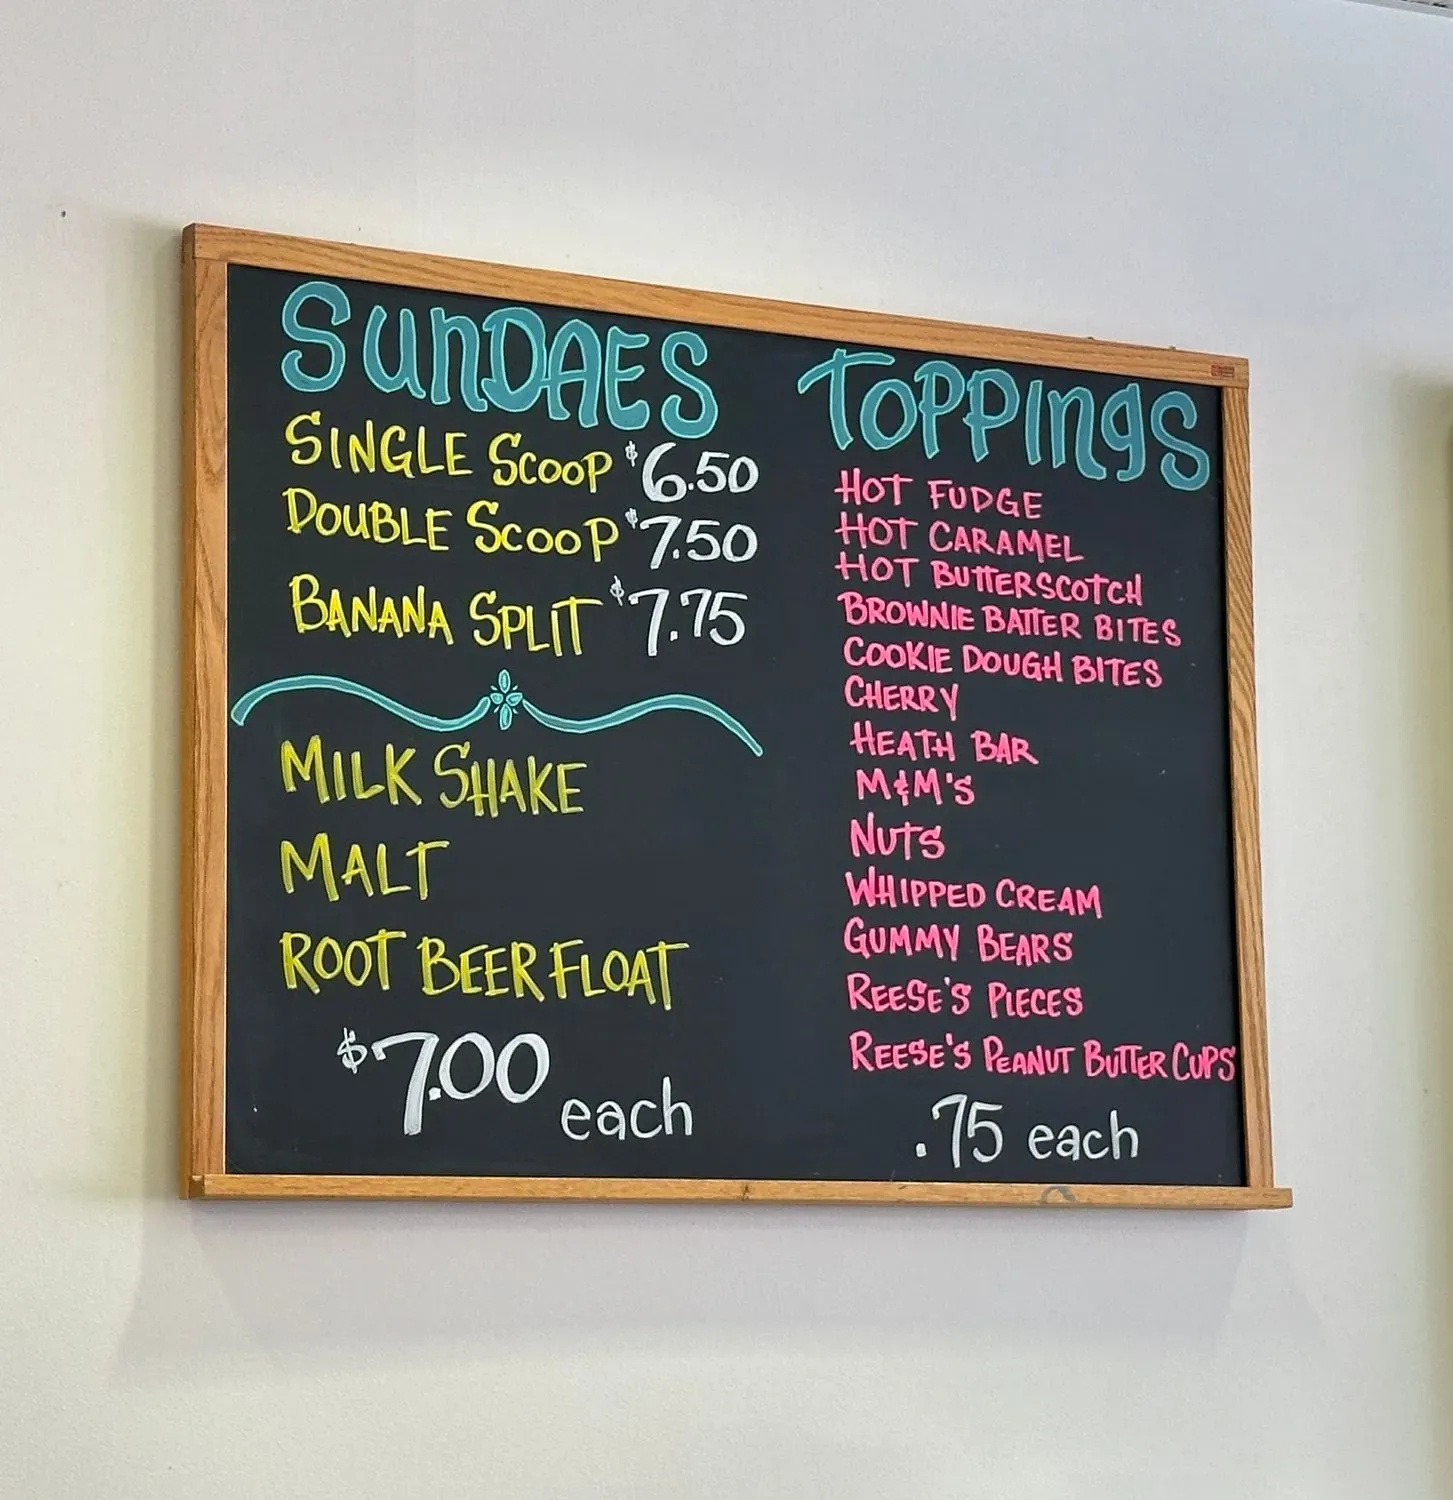 SUNDAES
SINGLE SCOOP $6.50
DOUBLE SCOOP $7.50
BANANA SPLIT $7.75
MILK SHAKE
MALT
ROOT BEER FLOAT
$7.00 each
TOPPINGS
HOT FUDGE
HOT CARAMEL
HOT BUTTERSCOTCH
BROWNIE BATTER BITES
COOKIE DOUGH BITES
CHERRY
HEATH BAR
M&M'S
NUTS
WHIPPED CREAM
GUMMY BEARS
REESE'S PIECES
REESE'S PEANUT BUTTER CUPS
.75 each